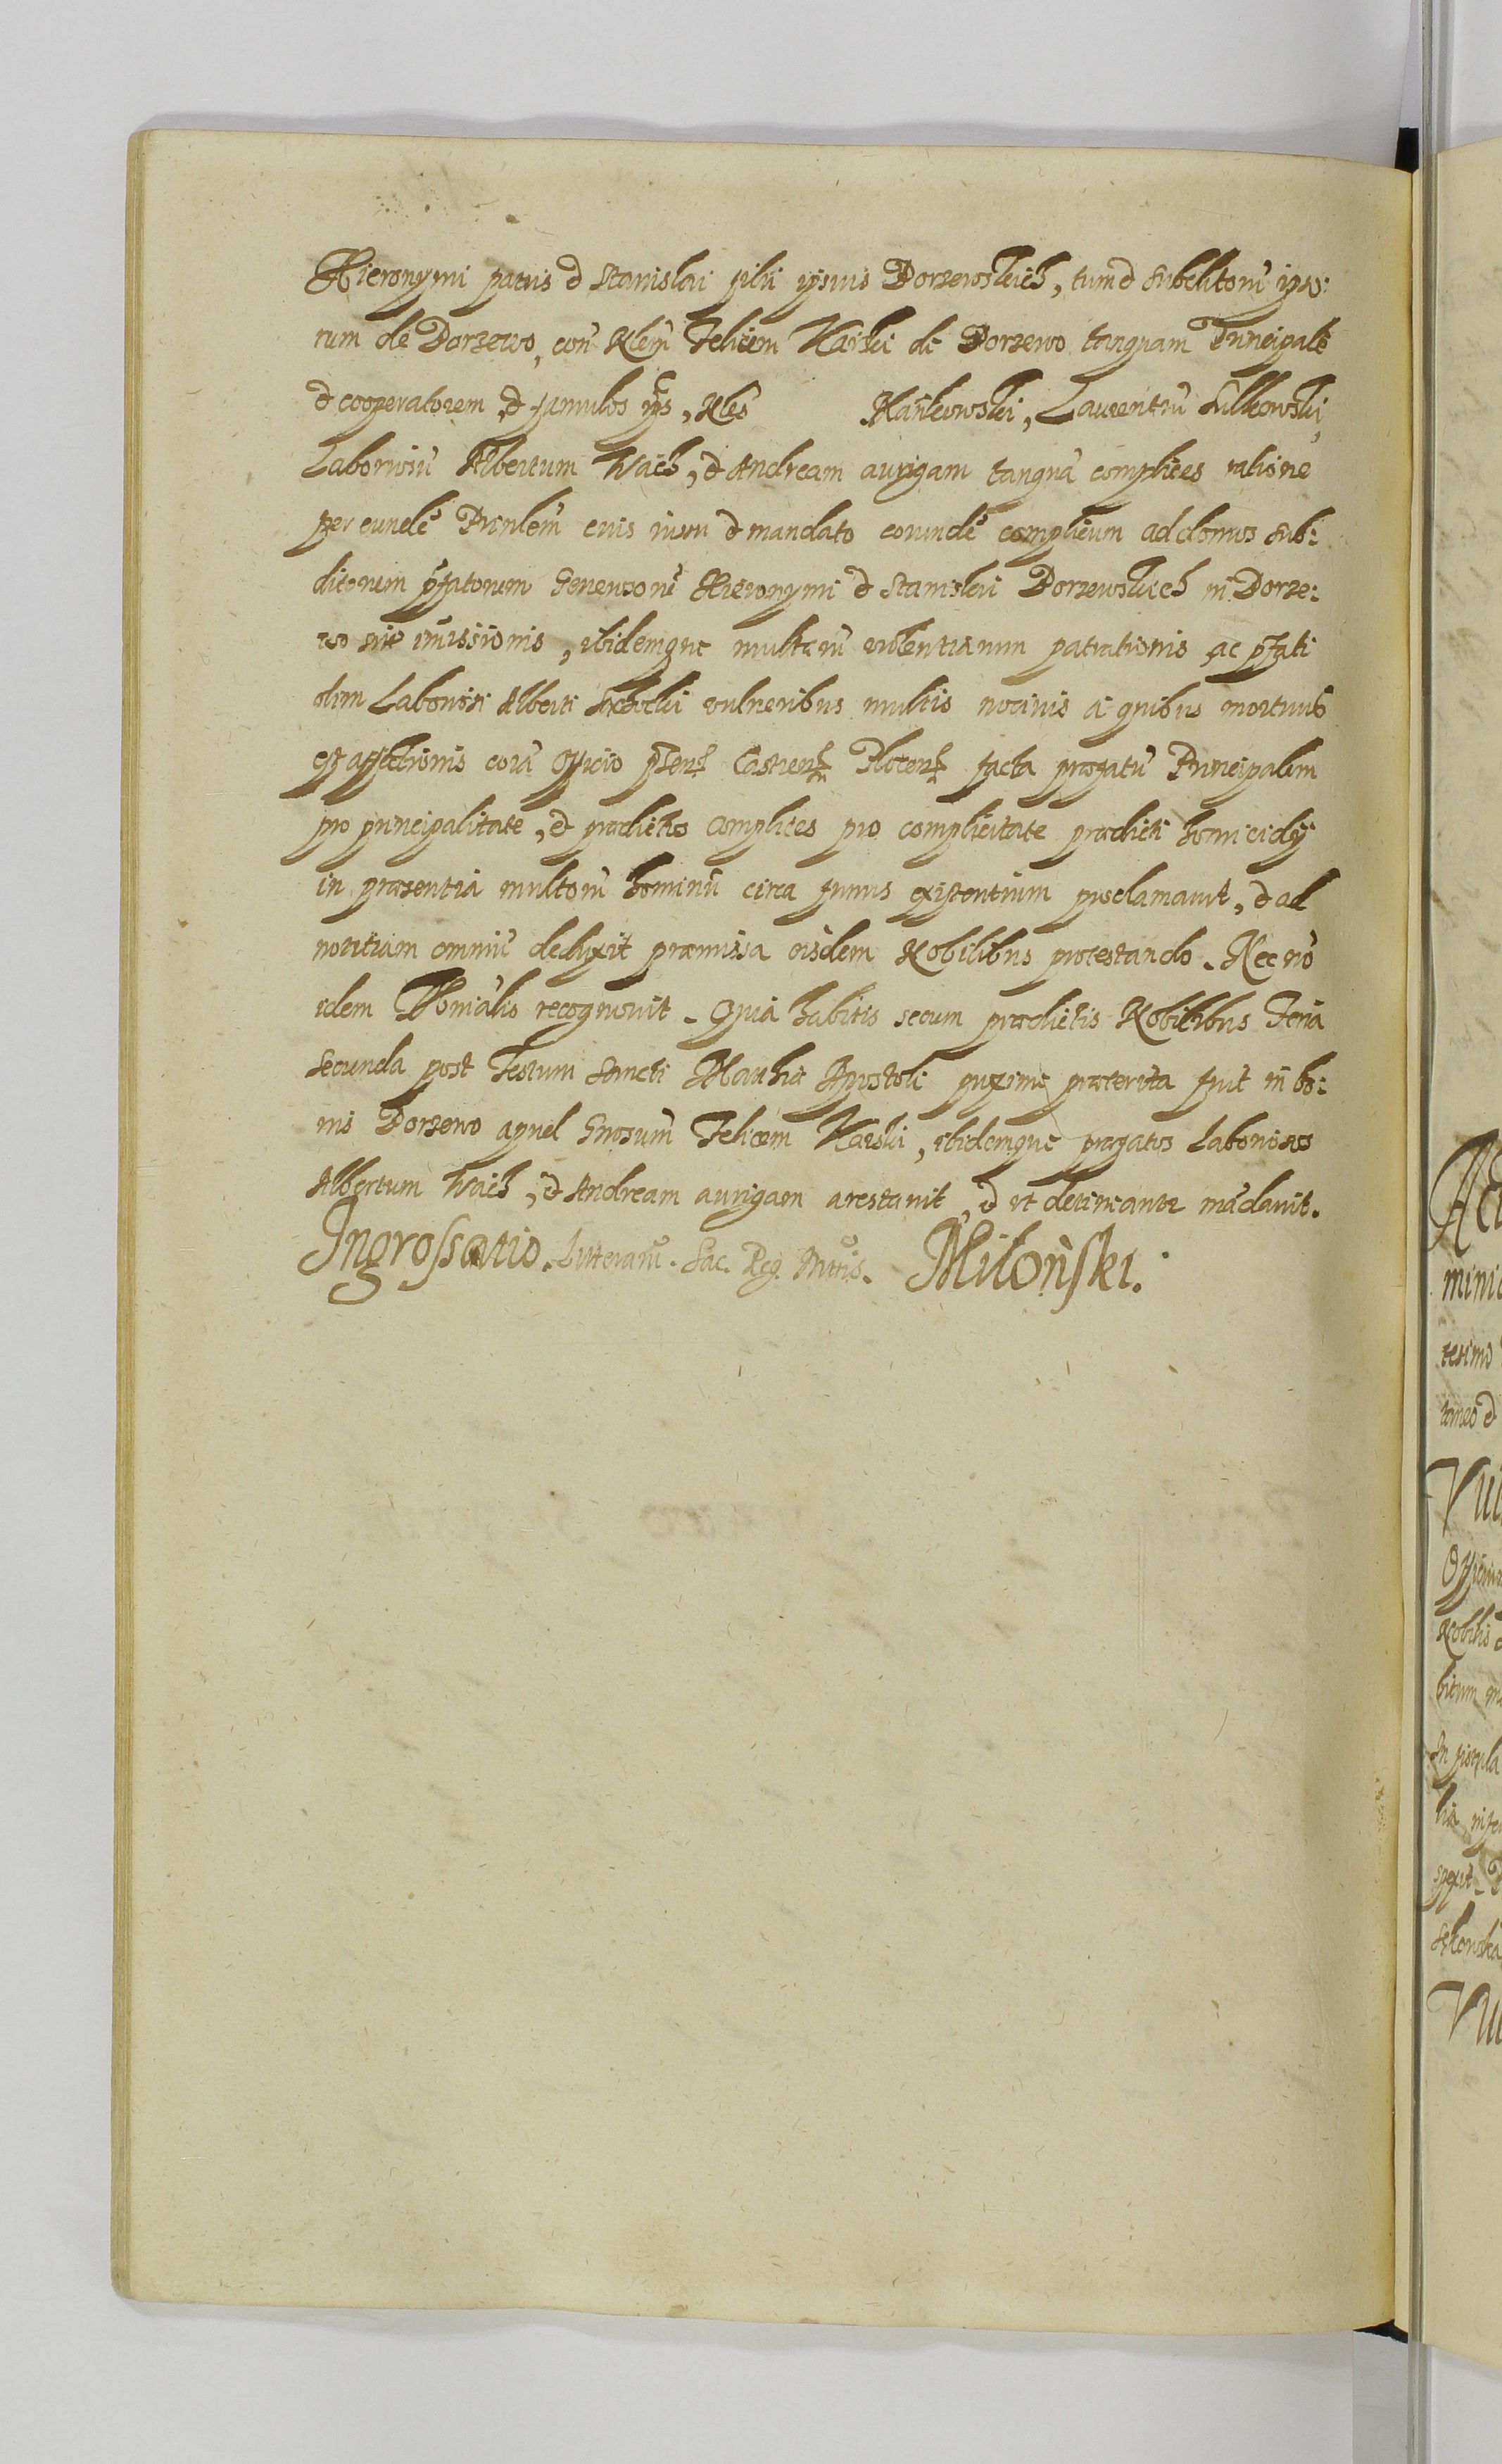 Hieronymi patris et Stanislai filii ipsius Dorzewskich, tum et subditorũ ipso:
rum de Dorzewo, con Nlem̃ Felicem Karski de Dorzewo tanquam Principalẽ
et cooperatorem, et famulos eius, Nles Kankowski, Laurentiũ
Laboriosũ Albertum Wach, et Andream aurigam tanquã complices ratione
per eundẽ Prinlem̃ eius iussu et mandato eorundẽ complicum ad domos sub:
ditorum p̃fatorum Generosorũ Hieronymi et Stanislai Dorzewskich in Dorze:
wo sitæ imissionis, ibidemque multarũ violentiarum patrationis ac p̃fati
olim Laboriosi Alberti vulneribus multis nocivis a quibus mortuus
est affectionis corã Officio p̃sen̄ Castren̄ Plocen̄ facta præfatũ Principalem
pro principalitate, et prædictos complices pro complicitate prædicti homicidij
in præsentia multorũ hominũ circa funus existentium proclamavit, et ad
notitiam omniũ deduxit præmissa eisdem Nobilibus protestando. Nec nõ
idem Mr̃ialis recognovit. Quia habitis secum prædictis Nobilibus Feria
secunda post Festum Sancti Matthiæ Apostoli proxime præterita fuit in bo:
nis Dorzewo apud Gnosum̃ Felicem Karski, ibidemque præfatos Laboriosos
Albertum Wach, et Andream aurigam arestavit, et ut detineantr mãdavit.
Ingrossatio. Litterarũ. Sac. Reg. Mttis. Miloński.
Act
minic
tesimo
taneo et
Offitiu
Nobilis
bitum